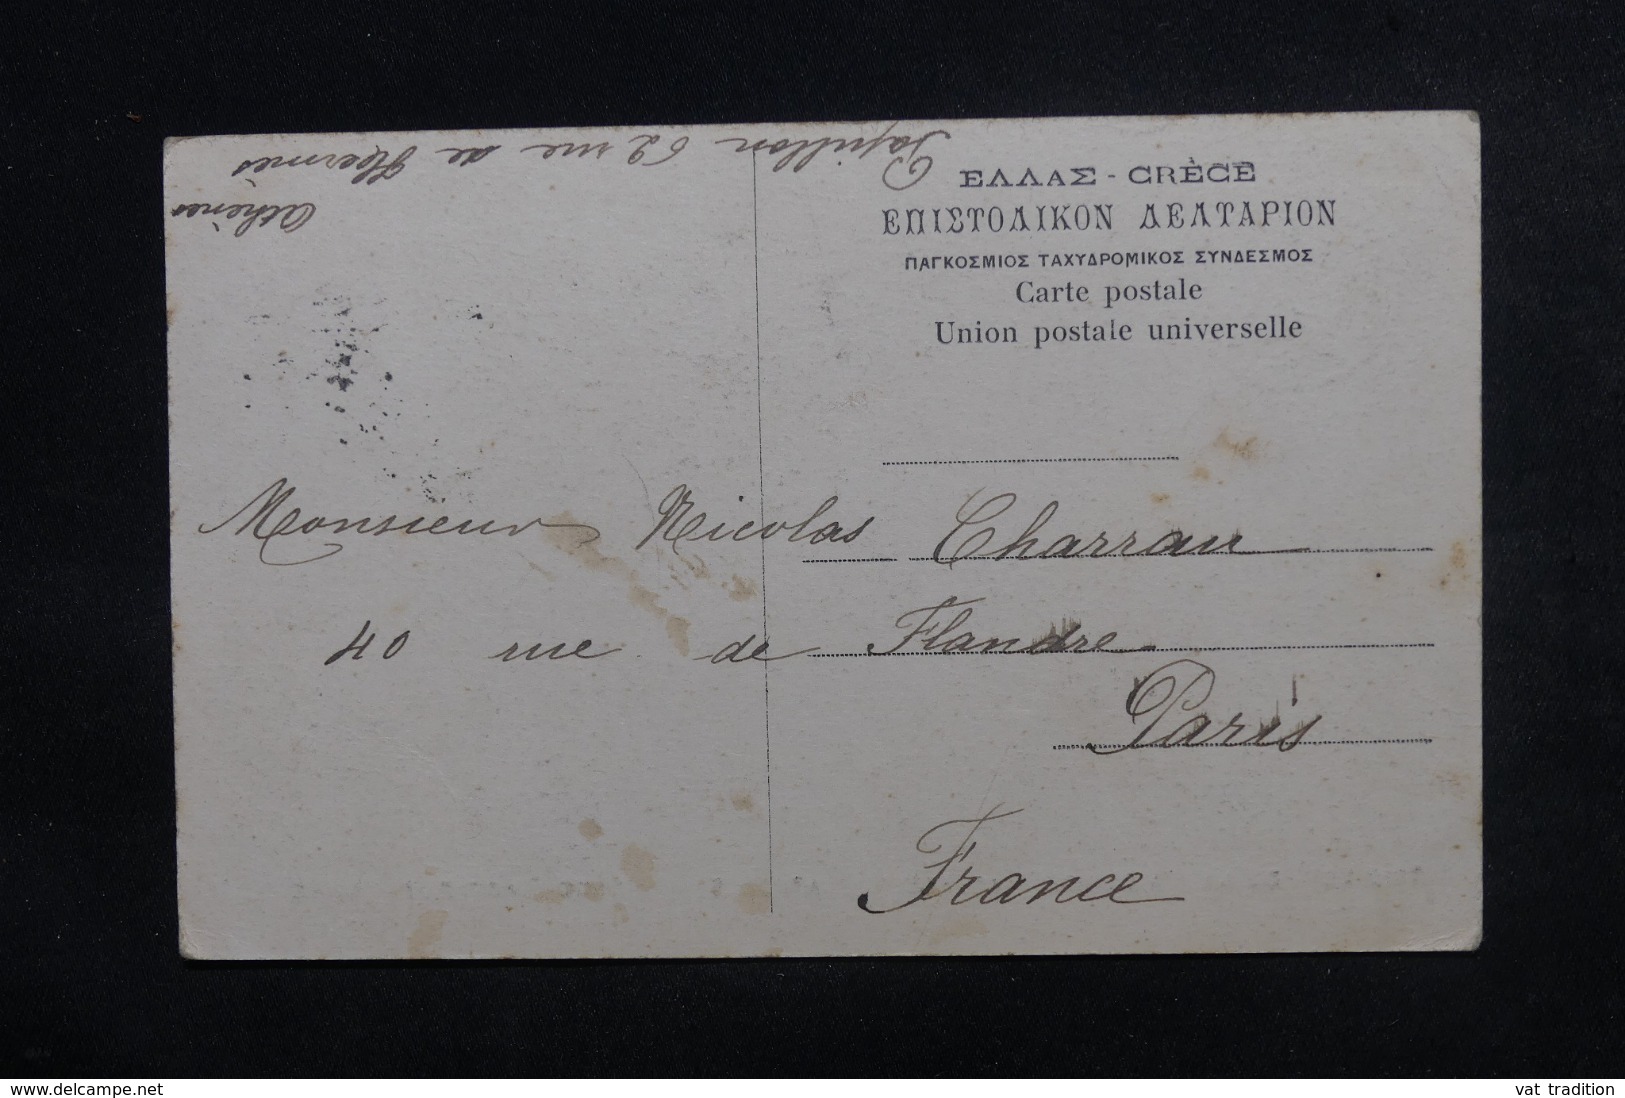 Papillon 62 rue de Hermès
Athènes
ΕΛΛΑΣ - GRÈCE
ΕΠΙΣΤΟΛΙΚΟΝ ΔΕΛΤΑΡΙΟΝ
ΠΑΓΚΟΣΜΙΟΣ ΤΑΧΥΔΡΟΜΙΚΟΣ ΣΥΝΔΕΣΜΟΣ
Carte postale
Union postale universelle
Monsieur Nicolas Charrau
40 rue de Flandre
Paris
France
www.delcampe.net
vat tradition